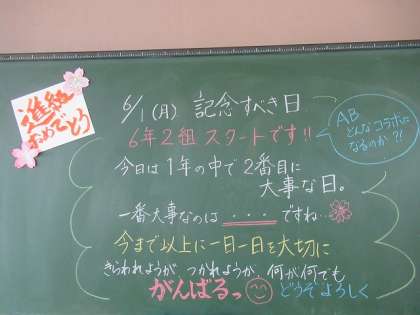 進級
おめでとう
6/1(月) 記念すべき日
6年2組 スタートです!!
AB
どんなコラボに
なるのか?!
今日は1年の中で2番目に
大事な日。
一番大事なのは・・・ですね…
今まで以上に一日一日を大切に
きらわれようが、つかれようが、何が何でも
がんばるっ
どうぞよろしく